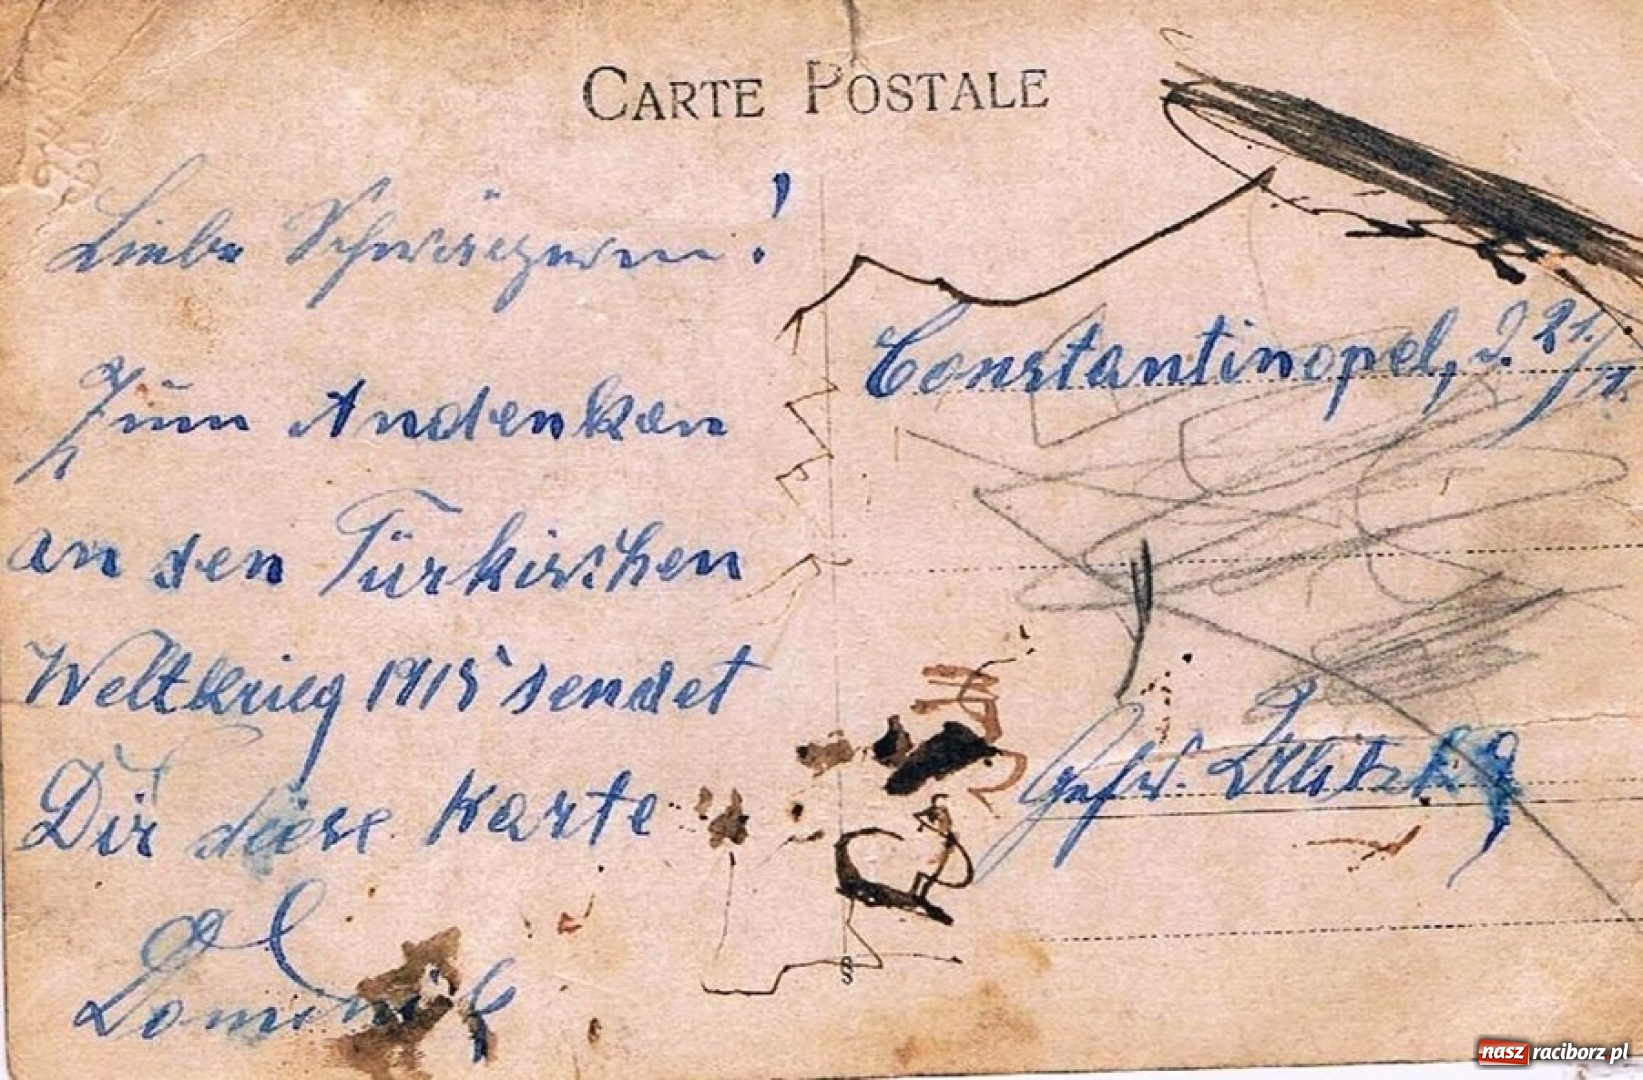 CARTE POSTALE
Liebe Schwägerin!
Zum Andenken
an den Türkischen
Weltkrieg 1915 sendet
Dir diese Karte
Dominik
Constantinopel, d. 21./
Gefr.
nasz raciborz.pl